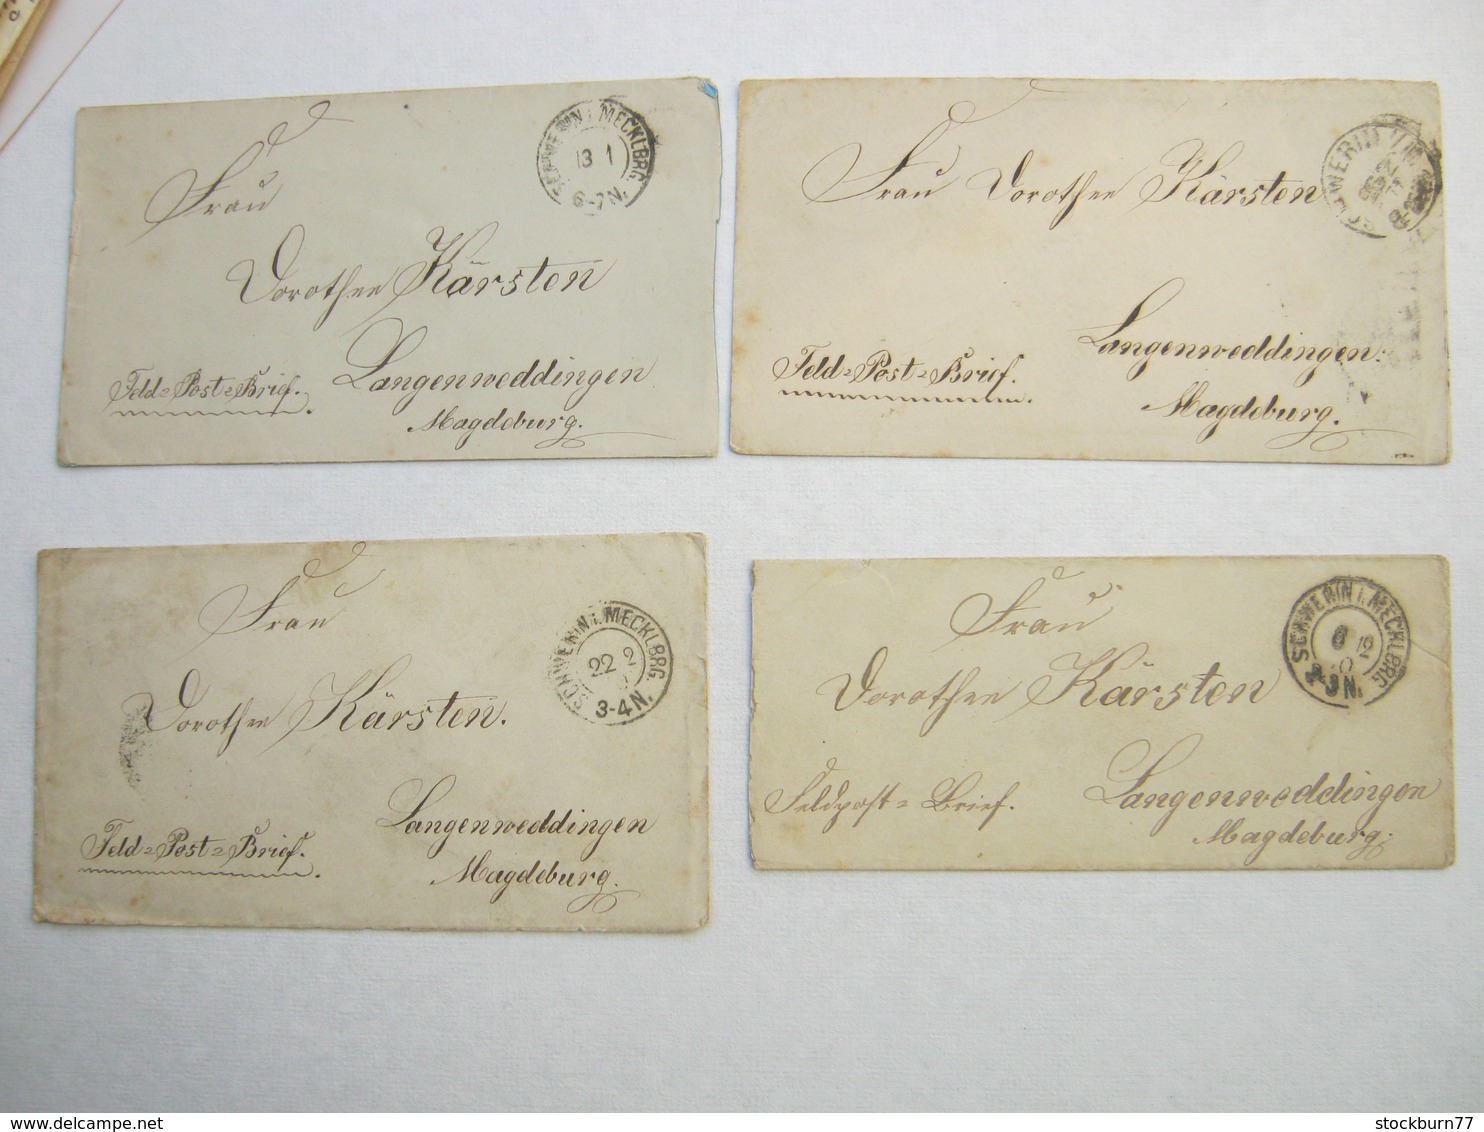 SCHWERIN i. MECKLBRG.
13 1
6-7N.
Frau
Dorothee Kärsten
Langenweddingen
Feld=Post=Brief.
Magdeburg.
SCHWERIN
Frau Dorothee Kärsten
Langenweddingen.
Feld=Post=Brief.
Magdeburg.
SCHWERIN i. MECKLBRG.
22 2
3-4N.
Frau
Dorothee Kärsten.
Langenweddingen
Feld=Post=Brief.
Magdeburg.
SCHWERIN i. MECKLBRG.
12
Frau
Dorothee Kärsten
Feldpost=Brief.
Langenweddingen
Magdeburg.
© www.delcampe.net
stockburn77